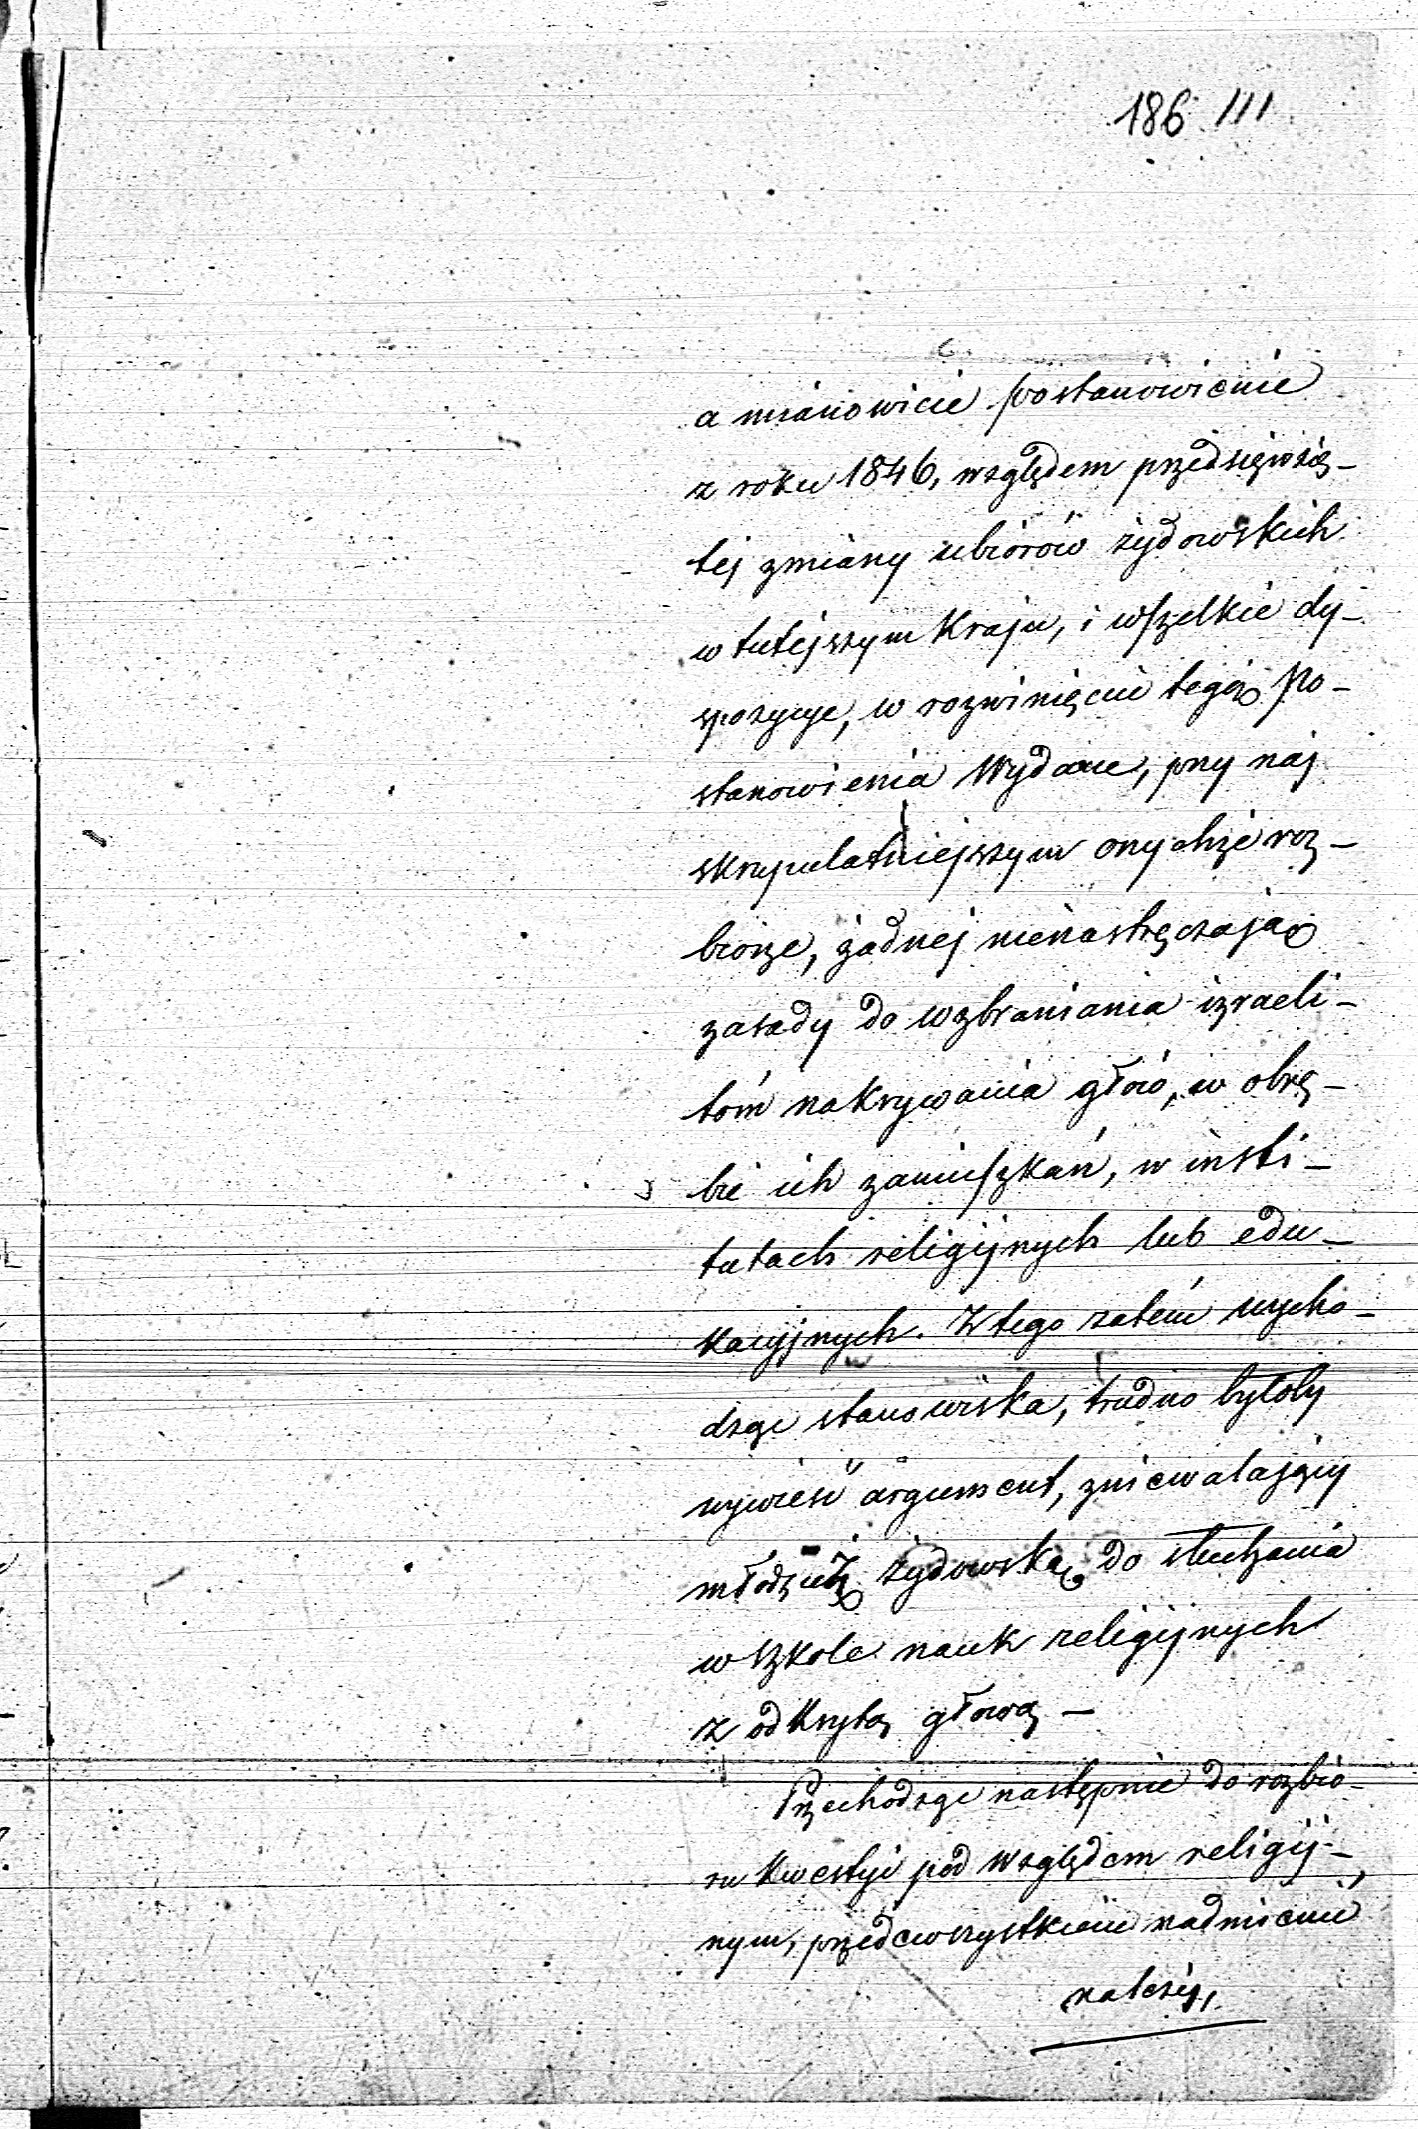 186 111
a mianowicie postanowienie
z roku 1846, względem przedsięwzię-
téj zmiany ubiorów żydowskich
w tutejszym Kraju, i wszelkie dy-
spozycye, w rozwinięciu tegoż Po-
stanowienia Wydane, przy naj
skrupulatniejszym onychże roz-
biorze, żadnej nienastręczają
zasady do wzbraniania izraeli-
tóm nakrywania głów, w obrę-
bie ich zamieszkań, w insti-
tutach religijnych lub edu-
kacyjnych. Z tego zatém wycho-
dząc stanowiska, trudno byłoby
wywieść argument, zniewalający
młodzież żydowską do słuchania
w szkole nauk religijnych
z odkrytą głową –
Przechodząc następnie do rozbio-
ru kwestyi pod względem religij-
nym, przedewszystkiém nadmienić
należy,